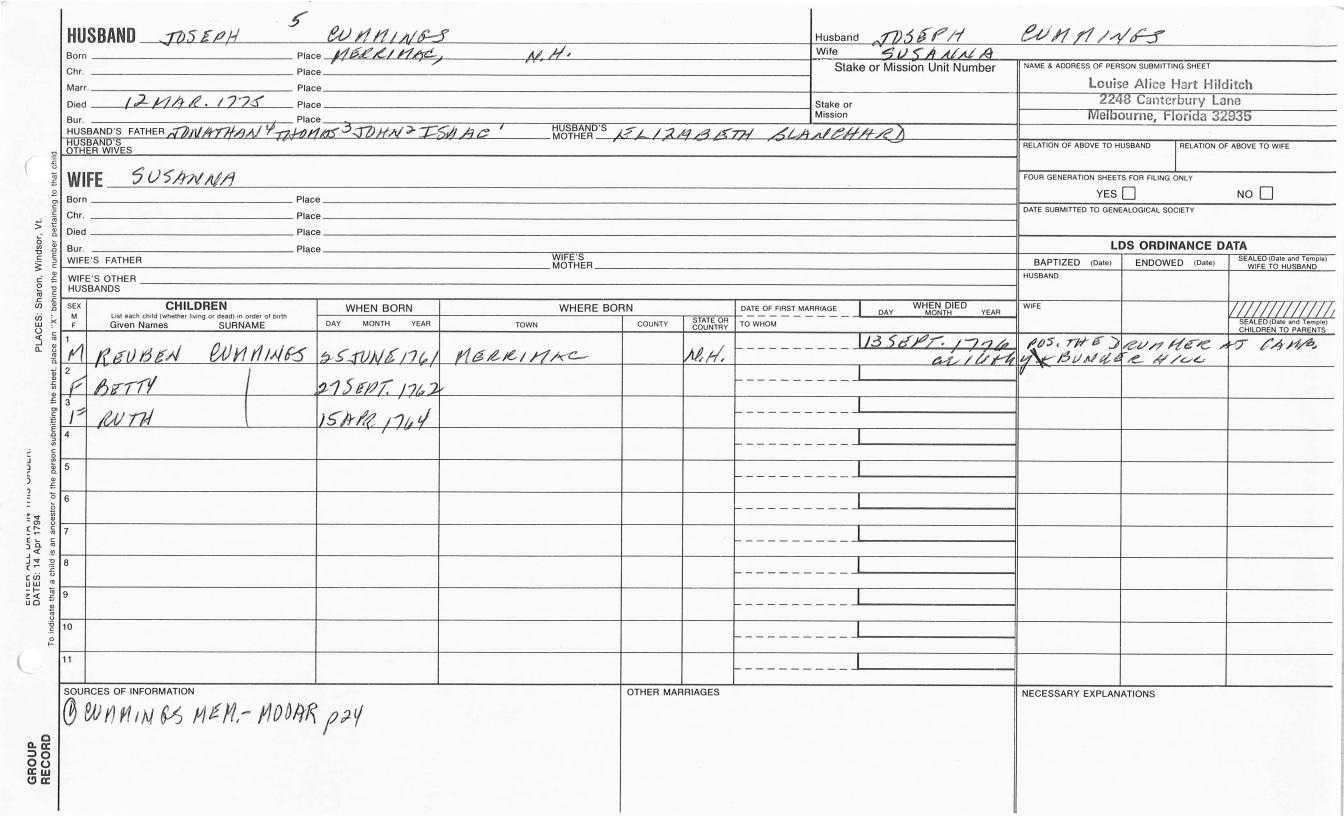 5
HUSBAND JOSEPH CUMMINGS
Born Place MERRIMAC, N.H.
Chr. Place
Marr. Place
Died 12 MAR. 1775 Place
Bur. Place
HUSBAND'S FATHER JONATHAN 4 THOMAS 3 JOHN 2 ISAAC 1 HUSBAND'S MOTHER ELIZABETH BLANCHARD
HUSBAND'S OTHER WIVES
Husband JOSEPH CUMMINGS
Wife SUSANNA
Stake or Mission Unit Number
Stake or Mission
NAME & ADDRESS OF PERSON SUBMITTING SHEET
Louise Alice Hart Hilditch
2248 Canterbury Lane
Melbourne, Florida 32935
RELATION OF ABOVE TO HUSBAND RELATION OF ABOVE TO WIFE
FOUR GENERATION SHEETS FOR FILING ONLY
YES NO
DATE SUBMITTED TO GENEALOGICAL SOCIETY
WIFE SUSANNA
Born Place
Chr. Place
Died Place
Bur. Place
WIFE'S FATHER WIFE'S MOTHER
WIFE'S OTHER HUSBANDS
LDS ORDINANCE DATA
BAPTIZED (Date) ENDOWED (Date) SEALED (Date and Temple) WIFE TO HUSBAND
HUSBAND
WIFE
SEALED (Date and Temple) CHILDREN TO PARENTS
SEX M F
CHILDREN
List each child (whether living or dead) in order of birth
Given Names SURNAME
WHEN BORN
DAY MONTH YEAR
WHERE BORN
TOWN COUNTY STATE OR COUNTRY
DATE OF FIRST MARRIAGE
TO WHOM
WHEN DIED
DAY MONTH YEAR
1 M REUBEN CUMMINGS 25 JUNE 1761 MERRIMAC N.H. 13 SEPT. 1776 POS. THE DRUMMER AT CAMB.
BUNKER HILL
2 F BETTY 27 SEPT. 1762
3 F RUTH 15 APR. 1764
4
5
6
7
8
9
10
11
SOURCES OF INFORMATION
① CUMMINGS MEM.- MODAR p24
OTHER MARRIAGES
NECESSARY EXPLANATIONS
PLACES: Sharon, Windsor, Vt.
DATES: 14 Apr 1794
To indicate that a child is an ancestor of the person submitting the sheet, place an "X" behind the number pertaining to that child.
GROUP RECORD